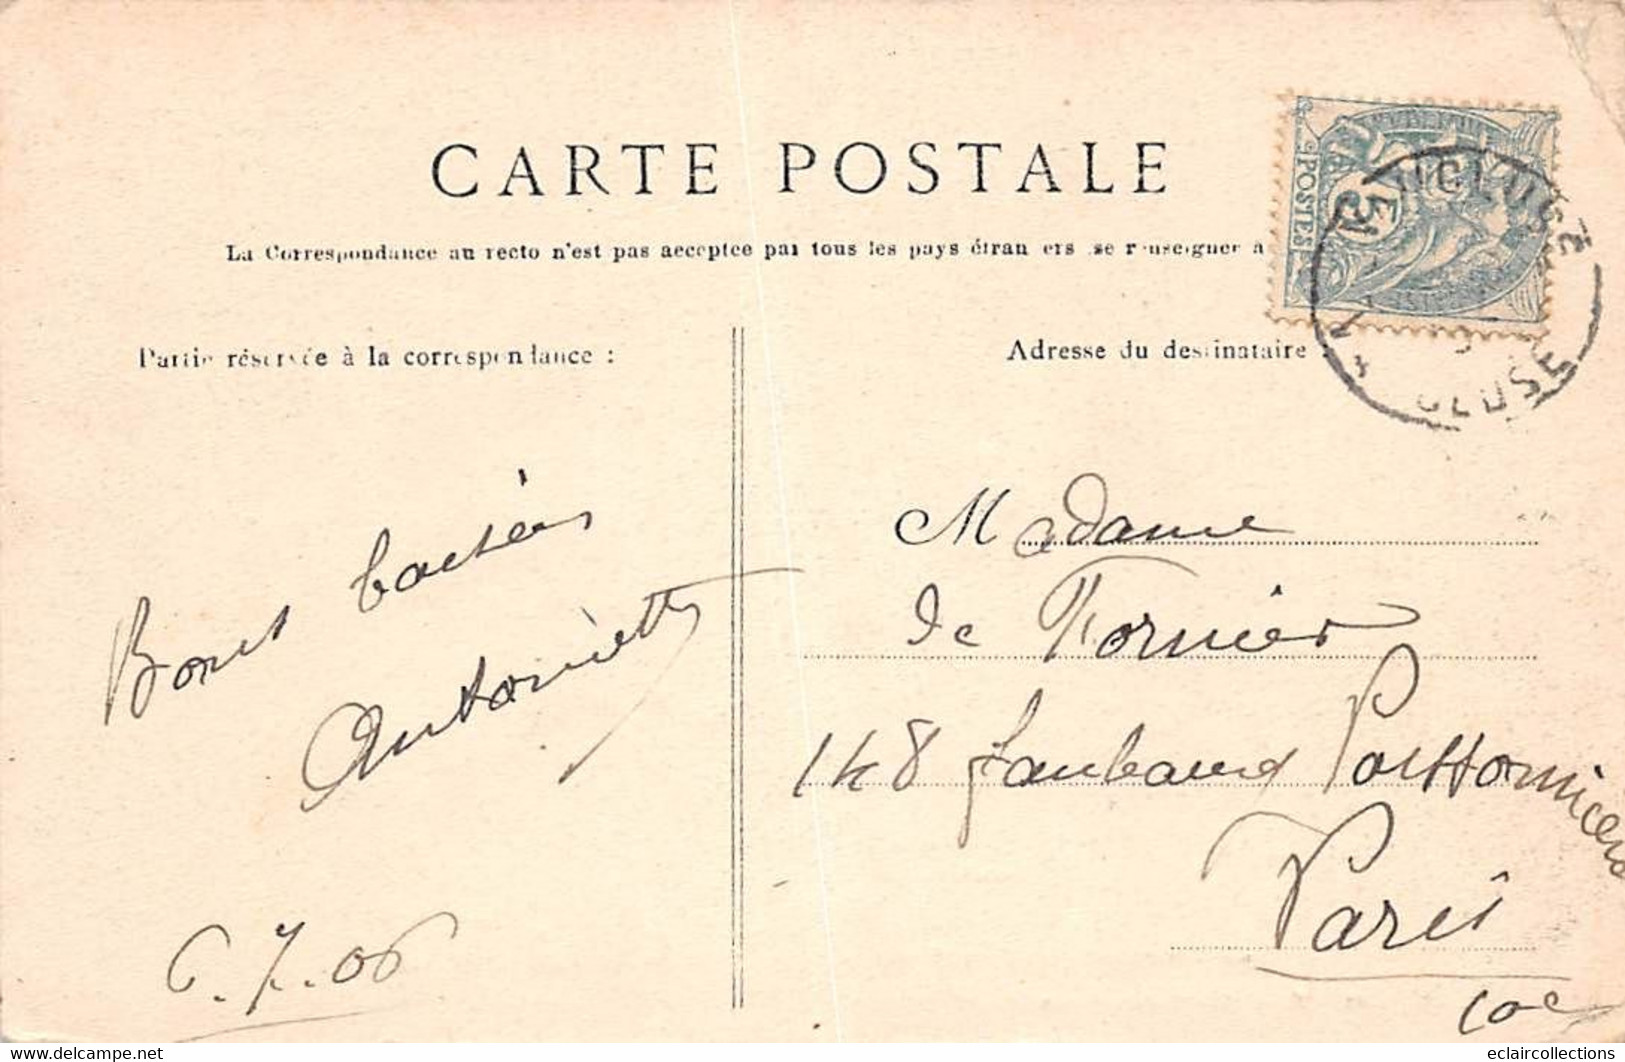 CARTE POSTALE
La Correspondance au recto n'est pas acceptee par tous les pays étran ers se renseigner à
POSTES
5
VAUCLUSE
Partie réservée à la correspondance :
Adresse du destinataire :
Bons baisers
Antoinette
6.7.06
Madame
de Fornier
148 faubourg Poissonnière
Paris
10e
delcampe.net
eclaircollections